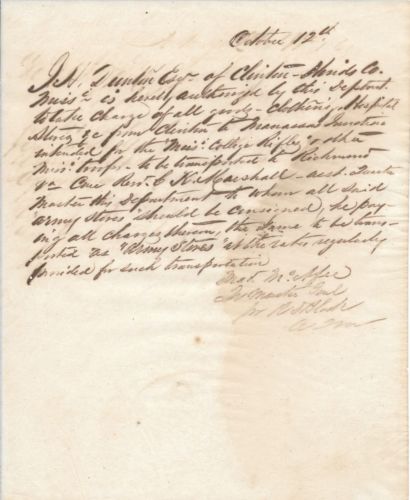 October 12th
J. W. Dunton Esqr of Clinton - Hinds Co.
Missr is hereby authorized by this Deptmt.
to take charge of all goods - clothing, Hospital
Stores &c from Clinton to Manassas Junction
intended for the Missi College Rifles & other
Missi troops - to be transported to Richmond
Va Care Revd. C. K. Marshall - asst. Quarter
Master this Department to whom all said
army Stores should be consigned, he pay-
ing all charges thereon, the Same to be trans-
ported as "Army Stores" at the rates regularly
provided for such transportation
Madn McAfee
Qr Master Genl
for